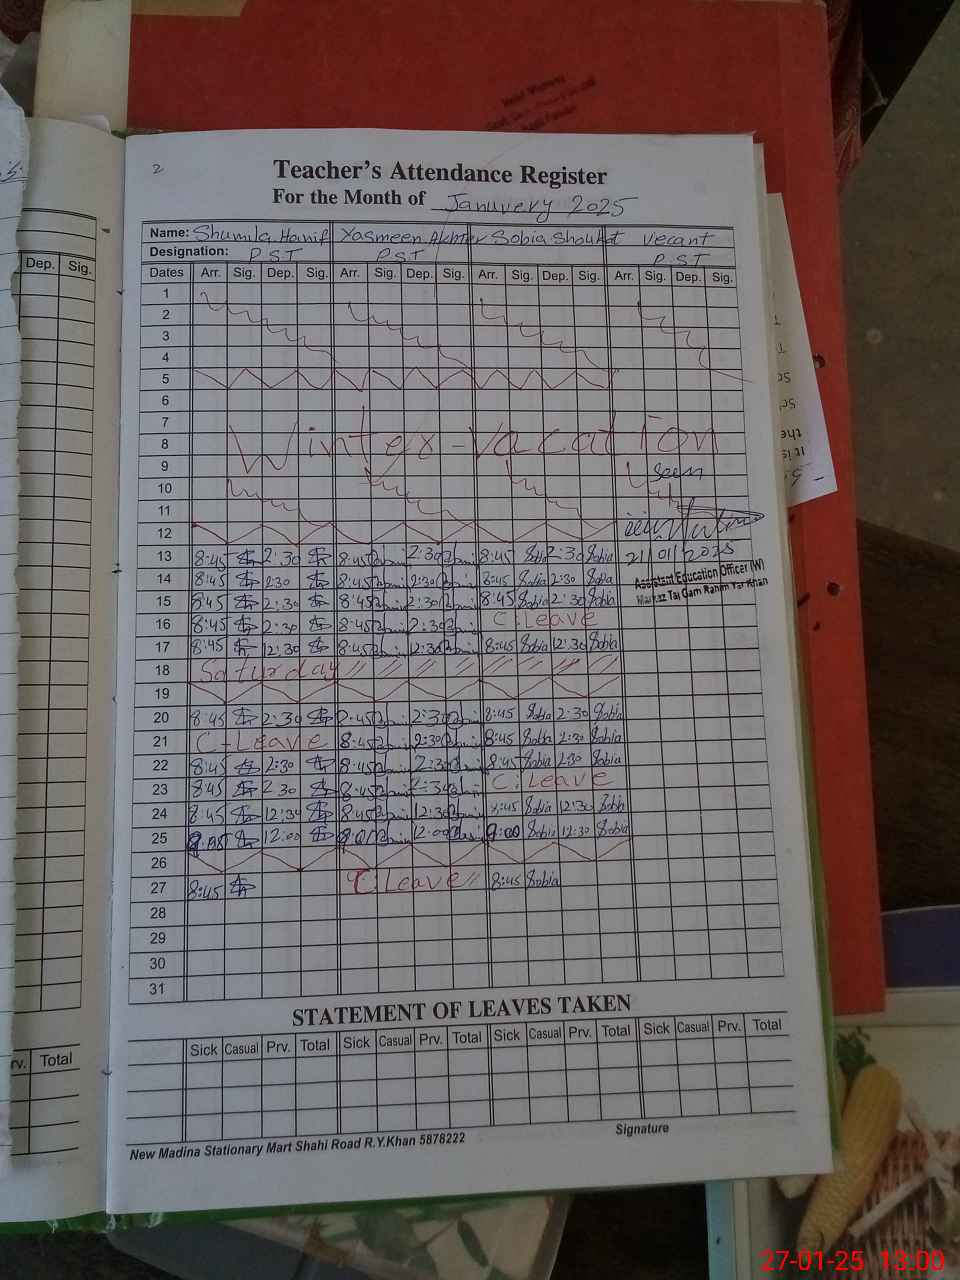 2
Teacher's Attendance Register
For the Month of Januvery 2025
Name: Shumila Hanif Yasmeen Akhter Sobia Shoukat Vecant
Designation: P.S.T P.S.T P.S.T
Dates Arr. Sig. Dep. Sig. Arr. Sig. Dep. Sig. Arr. Sig. Dep. Sig. Arr. Sig. Dep. Sig.
1
2
3
4
5
6
7
8 Winter-vacation
9 Seen
10
11
12
13 8:45 2:30 8:45 2:30 8:45 Sobia 2:30 Sobia 21/01/2025
14 8:45 2:30 8:45 2:30 8:45 Sobia 2:30 Sobia Assistant Education Officer (W)
15 8:45 2:30 8:45 2:30 8:45 Sobia 2:30 Sobia Markaz Taj Garh Rahim Yar Khan
16 8:45 2:30 8:45 2:30 C.Leave
17 8:45 12:30 8:45 12:30 8:45 Sobia 12:30 Sobia
18 Saturday // // // // // // // //
19
20 8:45 2:30 2:30 8:45 Sobia 2:30 Sobia
21 C-Leave 8:45 2:30 8:45 Sobia 2:30 Sobia
22 8:45 2:30 8:45 2:30 8:45 Sobia 2:30 Sobia
23 8:45 2:30 8:45 2:30 C:Leave
24 8:45 12:30 8:45 12:30 8:45 Sobia 12:30 Sobia
25 12:00 12:00 9:00 Sobia 12:30 Sobia
26
27 8:45 C Leave // 8:45 Sobia
28
29
30
31
STATEMENT OF LEAVES TAKEN
Sick Casual Prv. Total Sick Casual Prv. Total Sick Casual Prv. Total Sick Casual Prv. Total
Signature
New Madina Stationary Mart Shahi Road R.Y.Khan 5878222
Dep. Sig.
rv. Total
27-01-25 13:00